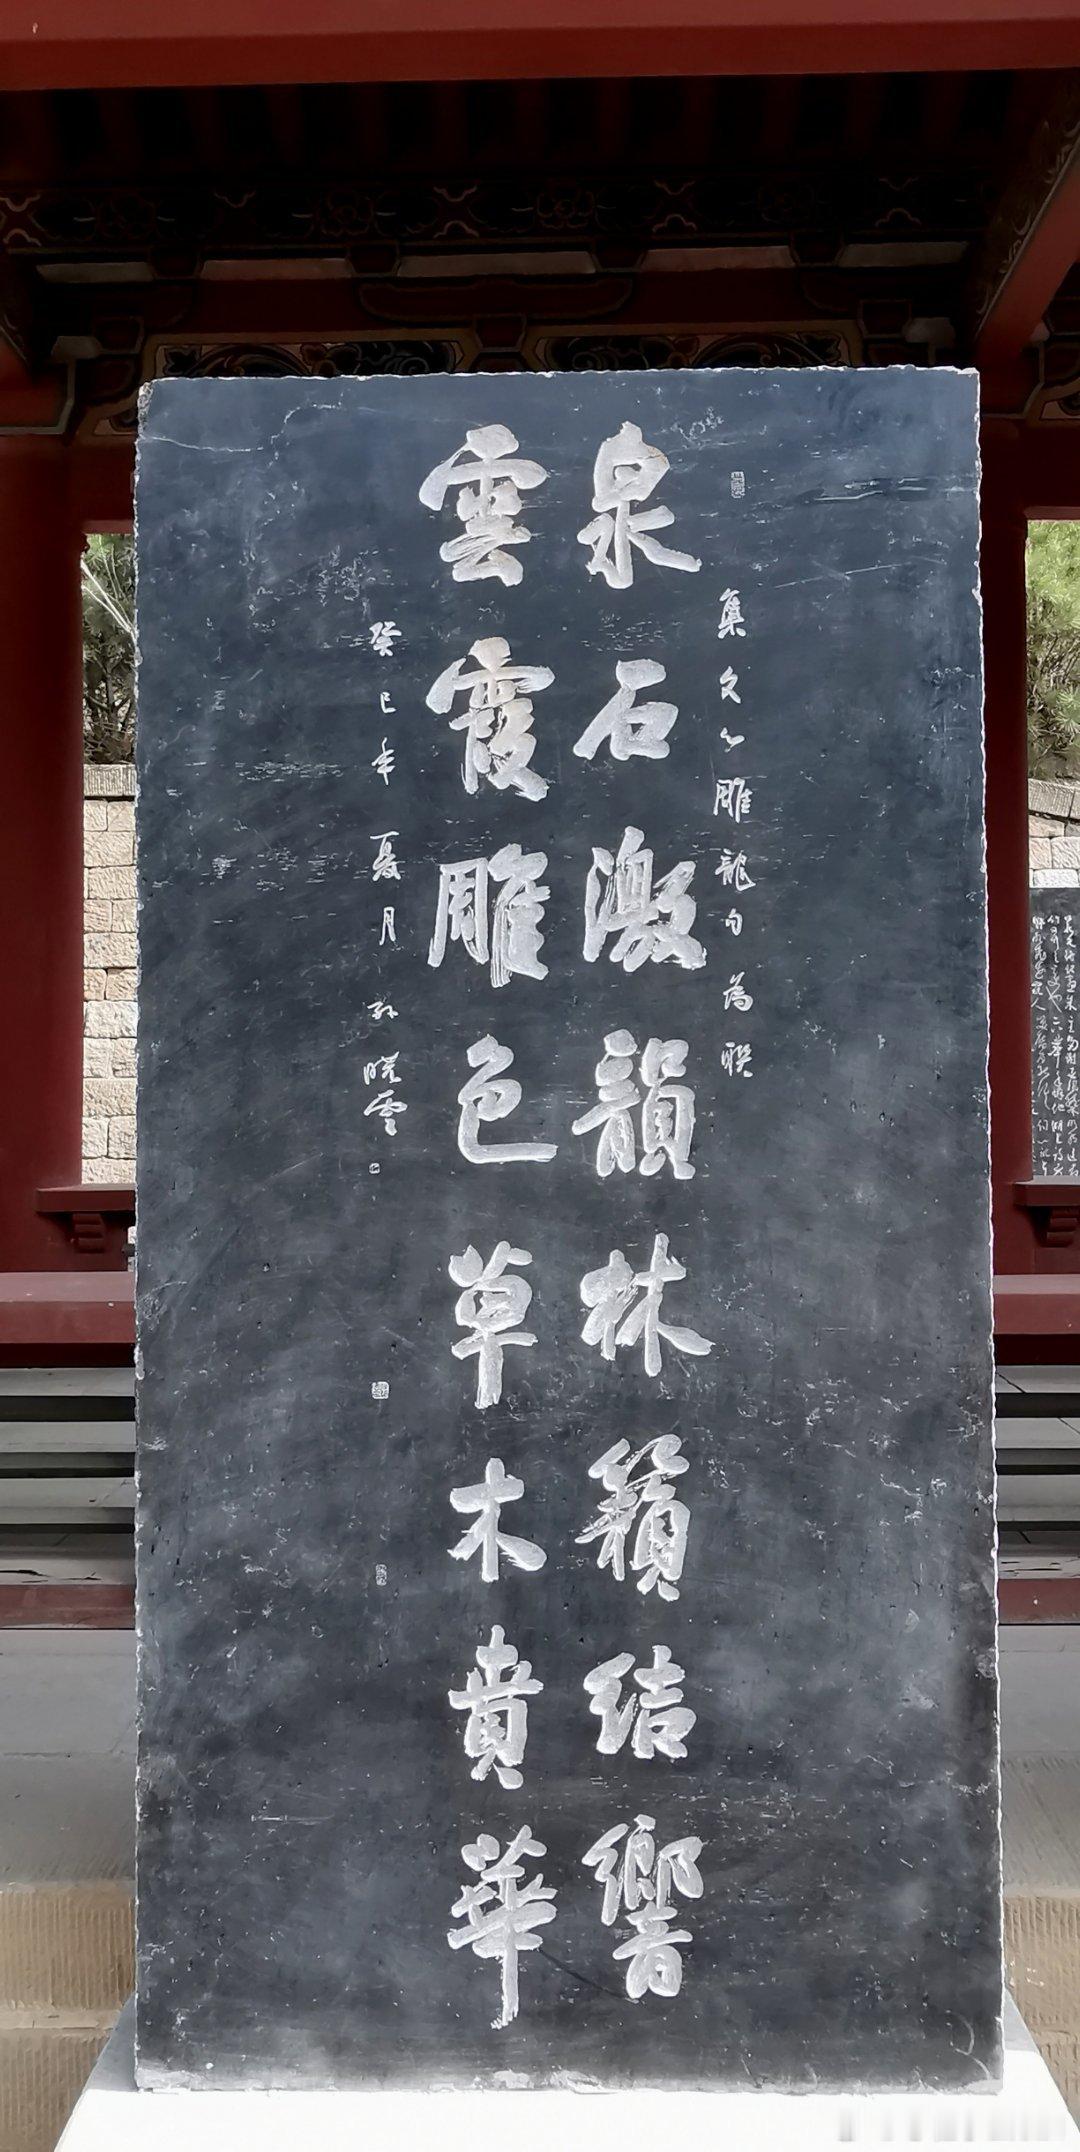 集文心雕龍句為聯
泉石激韻林籟結響
雲霞雕色草木賁華
癸巳年夏月孫曉雲